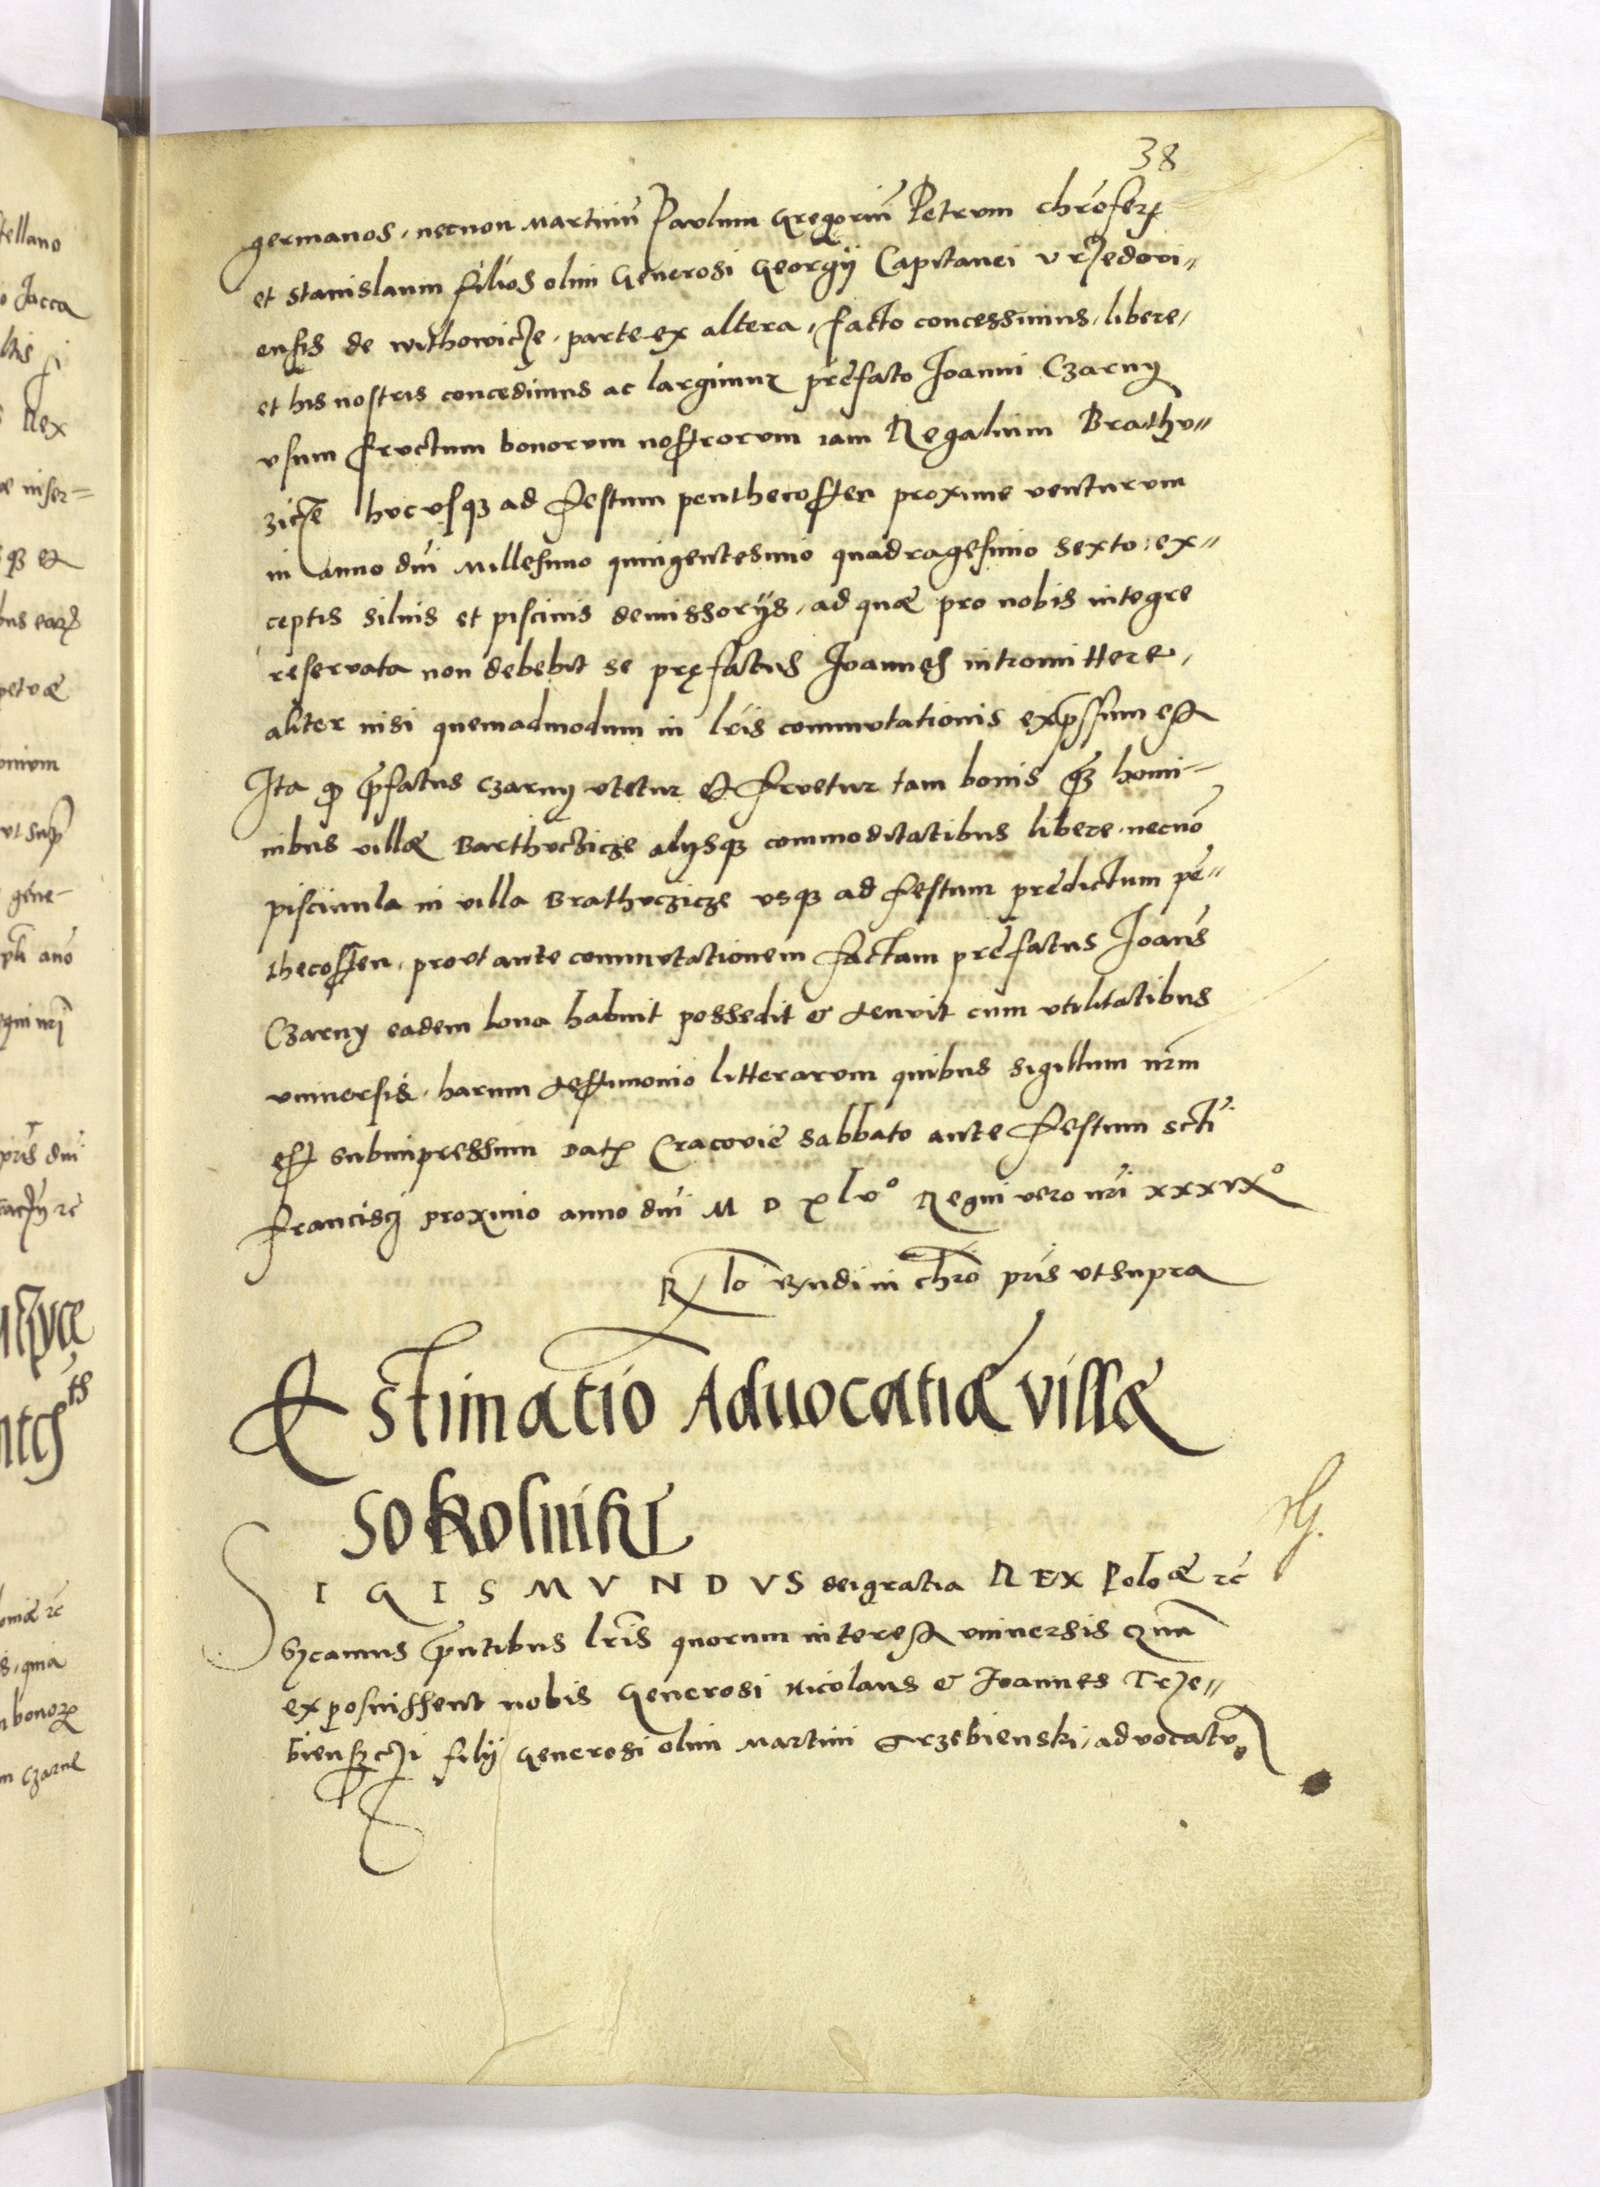 38
germanos, necnon Martinū Paulum Gregoriū Petrum
et Stanislaum filios olim Generosi Georgij Capitanei vrzedovi=
ensis de withowicze, parte ex altera, facto concessimus, libere,
et his nostris concedimus ac largimur prefato Joanni Czarny
vsum fructum bonorum nostrorum iam Regalium Brathv=
zicze hucusq3 ad festum penthecosten proxime venturum
in anno dni Millesimo quingentesimo quadragesimo sexto, ex=
ceptis siluis et piscinis demissorijs, ad quæ pro nobis integre
reseruata non debebit se pręfatus Joannes intromittere,
aliter nisi quemadmodum in lris commutationis exp̄ssum est
Ita q̄ p̄fatus Czarny vtetur et fruetur tam bonis q̄3 homi=
nibus villæ Barthvcżicze alijsq3 commoditatibus libere, necnō
piscinula in villa Brathvczicze vsq3 ad festum predictum pē=
thecosten, prout ante commutationem factam prefatus Joan̄s
Czarny eadem bona habuit possedit & tenuit cum vtilitatibus
vniuersis, harum testimonio litterarum quibus sigillum nrm
est subimpressum Dat Cracovie sabbato ante festum scti
francisci proximo anno dni M D xlv° Regni vero nri xxxvx°
Rlo Rndi in chro pris vt supra
Æstimatio Aduocatiæ villæ
Sokolniki
SIGISMVNDVS dei gratia REX Poloæ rc
p̄ntibus lris quorum interest vniuersis Qm̄
exposuissent nobis Generosi Nicolaus & Joannes Trze=
bienszczi filij Generosi olim Martini Trzebienski, advocatv
stellano
Jacca
Rex
inser=
q3 et
petuæ
vt sup̄
gene=
ano
pris dni
rc
quia
bonor
czarne